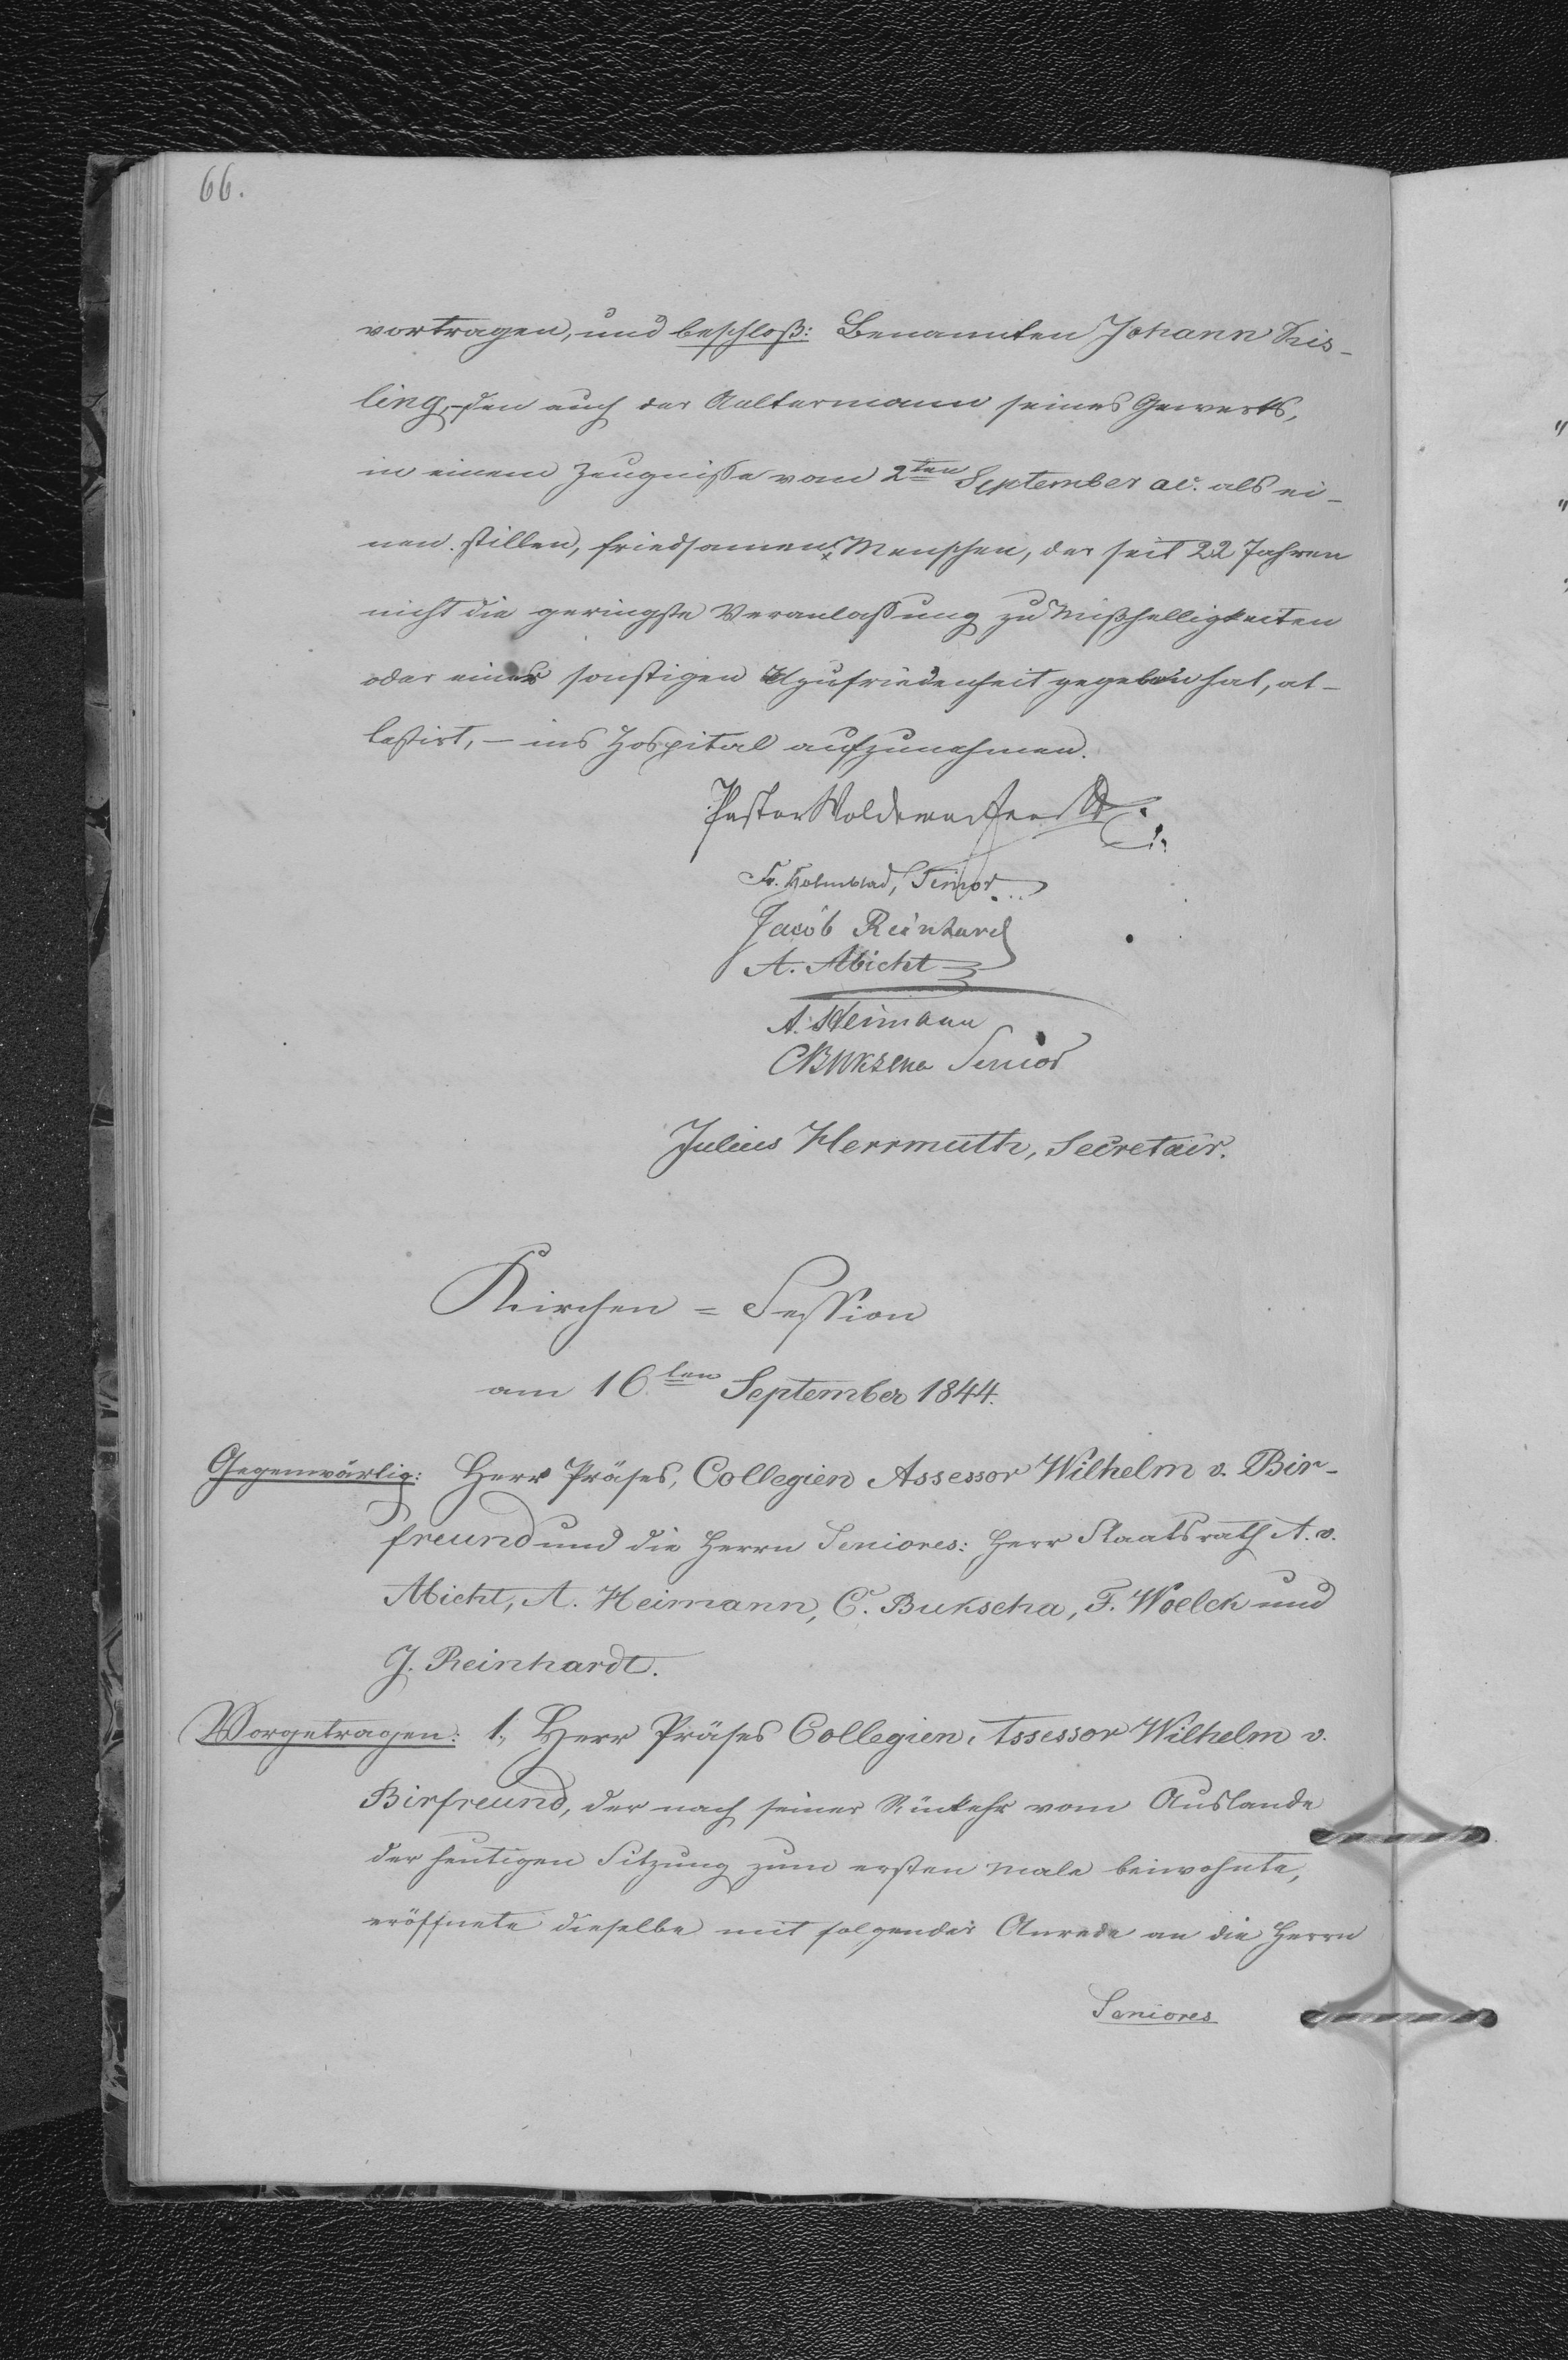 66.
vortragen, und beschloß: Benannten Johann Kis-
ling, den auch der Aeltermann seines Gewerks,
in einem Zeugnisse vom 2ten September ac. als ei-
nen stillen, friedsamen Menschen, der seit 22 Jahren
nicht die geringste Veranlassung zu Mißhelligkeiten
oder einer sonstigen Uzufriedenheit gegeben hat, at-
testirt, – ins Hospital aufzunehmen.
Pastor
Fr. Holmblad, Senior
Jacob Reinhard
A. Abicht
A. Heimann
CBukscha Senior
Julius Herrmuth, Secretair.
Kirchen = Session
am 16ten September 1844.
Gegenwärtig: Herr Präses, Collegien Assessor Wilhelm v. Bir-
freund und die Herrn Seniores: Herr Staatsrath A. v.
Abicht, A. Heimann, C. Bukscha, F. Woelck und
J. Reinhardt.
Vorgetragen: 1., Herr Präses Collegien Assessor Wilhelm v.
Birfreund, der nach seiner Rückkehr vom Auslande
der heutigen Sitzung zum ersten Male beiwohnte,
eröffnete dieselbe mit folgender Anrede an die Herrn
Seniores